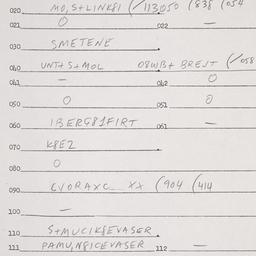 020 MO,S+LINK81 (/113050 (838 (054
021 O 022 —
030 SMETENE
040 UNT+S+MOL 08WB+ BREJT (/058
041 — 042 O
050 O 051 O
060 IBERG81FIRT 061 —
070 K8E2
080 O
090 CVORAXC XX (904 (414
100 —
110 S+MUCIK8EVASER
111 PAMU,N8ICEVASER 112 —